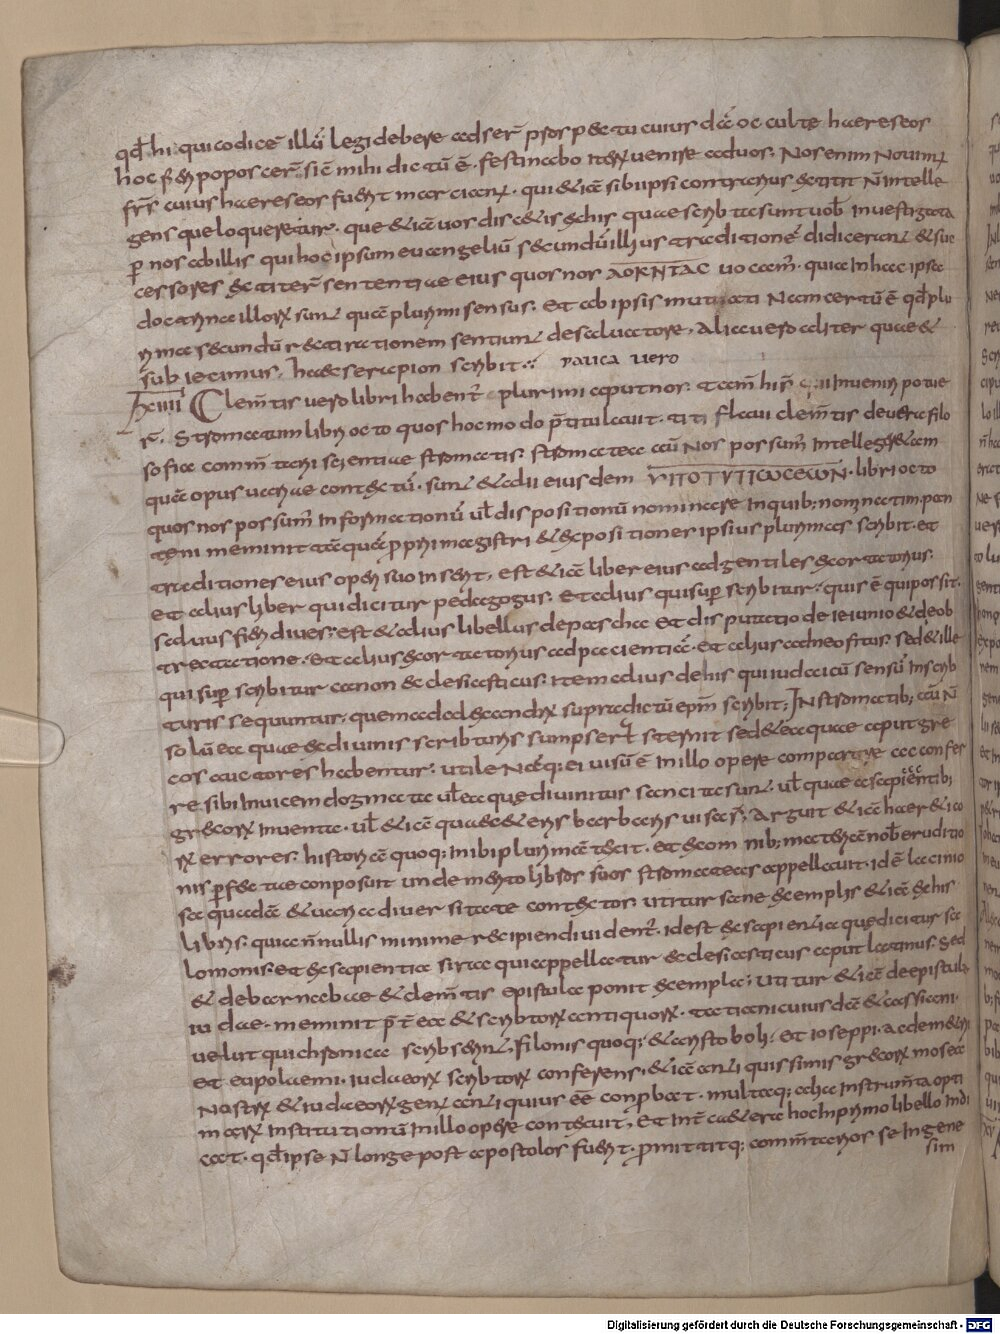 qđ hi qui codicē illū legi debere adserˉ psos p&ta cuius dcē occulte haereseos
hoc fieri poposcerˉ sic mihi dictū ē. festinabo iterū venire ad uos. Nos enim novimus
frs cuius haereseos fuerit marcianus. qui &iā sibi ipsi contrarius extitit n̄ intelle
gens que loqueretur. que &iā uos discetis ex his quae scribta sunt uob̄ investigata
p nos ab illis qui hoc ipsum euangeliū secundū illius traditionē didicerant & suc
cessores extiterˉ sententiae eius quos nos ΔΟΚΝΤΑC uocam̄. quia in haec ipsa
doctrina illorū sunt quā plurimi sensus. et ab ipsis mutuati Nam certū ē qđ plu
rima secundū recta rationem sentiunt de saluatore, Alia uero aliter quae &
subiecimus. haec serapion scribit. pauca vero
Clemtis uero libri habentˉ plurimi aput nos. tam hisˉ qui invenire potue
rˉ. Stromatum libri octo quos hoc modo p̄titulauit. titi flaui clemtis de uera filo
sofia comm̄tarii scientiae stromatis. stromatea aū nos possum̄ intellegere &iam
quē opus uariae contextū. sunt & alii eiusdem ΥΠΟΤΥΠΩCΕΩΝ. libri octo
quos nos possum̄ informationū ul̄ dispositionū nominare In quib; nominatim pan
teni meminit tāquā pprii magistri & expositiones ipsius plurimas scribit. et
traditiones eius operi suo inserit, est &iā liber eius ad gentiles exortatorius.
et alius liber qui dicitur pedagogus. et alius qui sup̄ scribitur. quis ē qui possit.
saluus fieri dives: est & alius libellus de pascha et disputatio de ieiunio & de ob
trectatione. et alius exortatorius ad pacientiā. et alius ad neofitus. sed & ille
qui sup̄ scribitur canon ecclesiasticus. item alius de his qui iudaicū sensū inscrib
turis sequuntur. quem ad alexandrū supradictū epm̄ scribit; In stromatib; aū n̄
solū ea quae ex divinis scribturis sumpserˉt sternit sed & ea quae aput gre
cos auctores habentur. utile Naq; ei uisū ē in illo opere comparare ac confer
re sibi inuicem dogmata ul̄ ea quę divinitus sancita sunt. ul̄ quae a sapientib;
grecorū inventa. ul̄ &iā quae & ueris barbaris uisa sˉ. Arguit &iā haer&ico
rū errores. historiā quoq; in ibi plurimā texit. et ex omnib; mat&riā nob̄ eruditio
nis pfectae conposuit unde merito libros suos stromateas appellauit. idē lacinio
sa quadā & uaria diversitate contextos. utitur sane exemplis &iā ex his
libris. quia n̄nullis minime recipiendi uidentˉ. idest ex sapientia quę dicitur sa
lomonis. et ex sapientia sirac qui appellatur ecclesiasticus aput latinus. sed
& de barnabae & clem̄tis epistula ponit exempla; utitur &iā de epistula
iudae. meminit p̄terea & scribtorū antiquorū. tatiani cuiusdā & cassiani.
uelut qui chronica scribserint. Filonis quoq; & aristoboli. et ioseppi. ac demetri
et eupolaemi. iudaeorū scribtorū conferens. &iā antiquissimis grecorū moseae
nostrū & iudaeorū genˉ antiquius ēē conpbat. multaq; alia instrum̄ta opti
marū institutionū in illo opere contexuit, et int̄ cet&era hoc in primo libello indi
cat. qđ ipse n̄ longe post apostolos fuerit. promittitq; comm̄tarios se in gene
sim
Digitalisierung gefördert durch die Deutsche Forschungsgemeinschaft - DFG